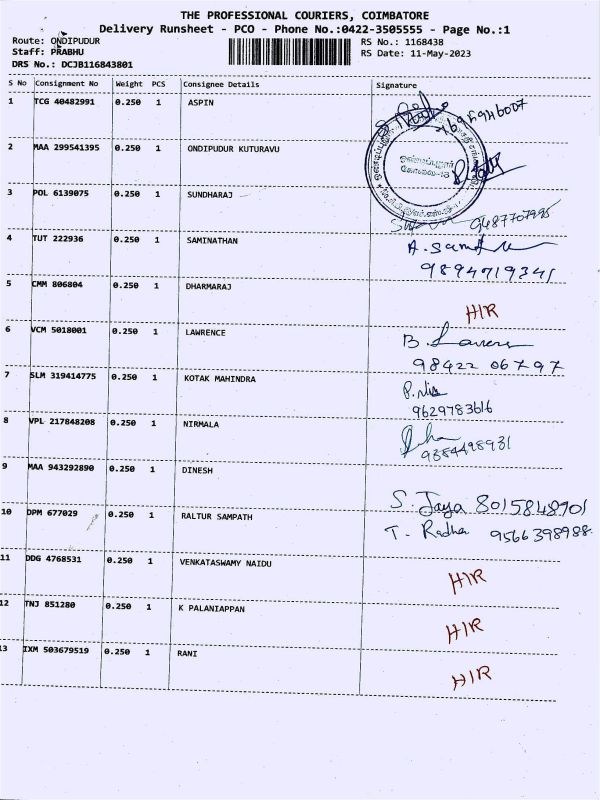 THE PROFESSIONAL COURIERS, COIMBATORE
Delivery Runsheet - PCO - Phone No.:0422-3505555 - Page No.:1
Route: ONDIPUDUR RS No.: 1168438
Staff: PRABHU RS Date: 11-May-2023
DRS No.: DCJB116843801
S No Consignment No Weight PCS Consignee Details Signature
1 TCG 40482991 0.250 1 ASPIN
2 MAA 299541395 0.250 1 ONDIPUDUR KUTURAVU
3 POL 6139075 0.250 1 SUNDHARAJ 9487707995
4 TUT 222936 0.250 1 SAMINATHAN
9894719341
5 CMM 806804 0.250 1 DHARMARAJ
HIR
6 VCM 5018001 0.250 1 LAWRENCE
98422 06797
7 SLM 319414775 0.250 1 KOTAK MAHINDRA
9629783616
8 VPL 217848208 0.250 1 NIRMALA
9384498931
9 MAA 943292890 0.250 1 DINESH
S. Jaya 8015848901
10 DPM 677029 0.250 1 RALTUR SAMPATH T. Radha 9566398988
11 DDG 4768531 0.250 1 VENKATASWAMY NAIDU HIR
12 TNJ 851280 0.250 1 K PALANIAPPAN HIR
13 IXM 503679519 0.250 1 RANI HIR